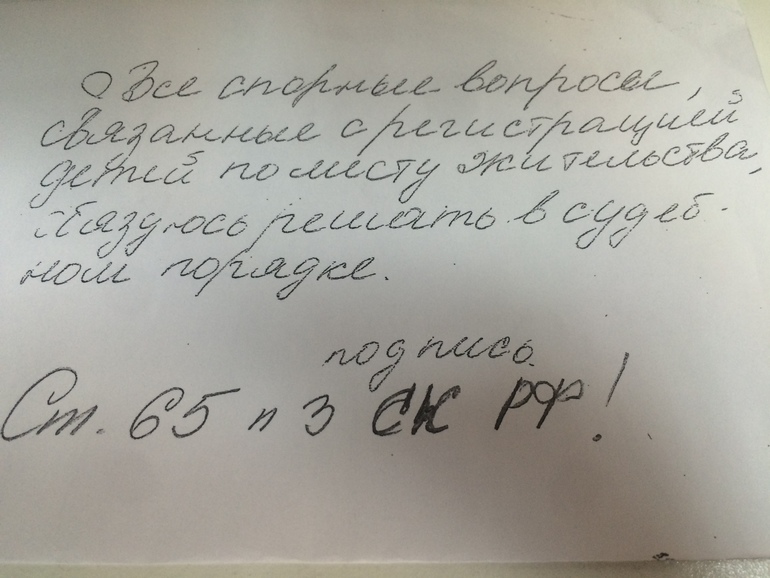 Все спорные вопросы,
связанные с регистрацией
детей по месту жительства,
обязуюсь решать в судеб-
ном порядке.
подпись
Ст. 65 п 3 СК РФ!